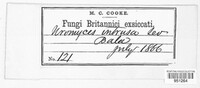 M. C. COOKE.
Fungi Britannici exsiccati,
Uromyces intrusa Lev
July 1866
No. 121